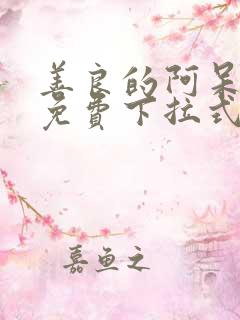 善良的阿呆
免费下拉式
嘉鱼之